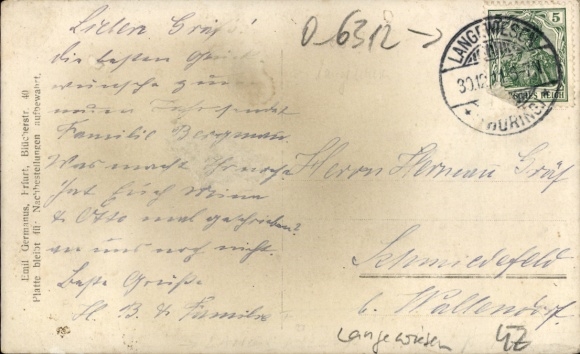 Lieber Gräf!
die besten Glück
wünsche zum
neuen Jahr sendet
Familie Bergmann.
Was macht
hat Euch Minna
& Otto mal geschrieben?
an uns noch nicht.
Beste Grüße
H. B. & Familie
O-6312 →
LANGEWIESEN
30.12.
(THÜRING.)
5
DEUTSCHES REICH
Herrn Herman Gräf
Schmiedefeld
b. Wallendorf
Langewiesen
Emil Germanus, Erfurt, Blücherstr. 40
Platte bleibt für Nachbestellungen aufbewahrt.